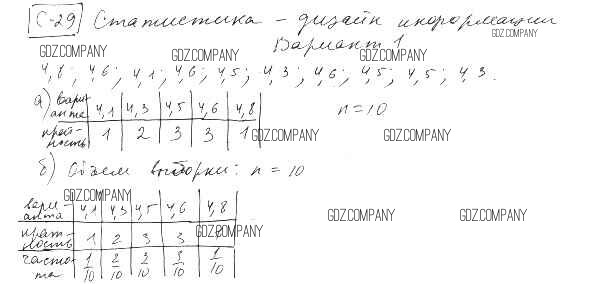 С-29 Статистика – дизайн информации
GDZ.COMPANY
Вариант 1
GDZ.COMPANY GDZ.COMPANY GDZ.COMPANY
4,8; 4,6; 4,1; 4,6; 4,5; 4,3; 4,6; 4,5; 4,5; 4,3.
а) вари-анта 4,1 4,3 4,5 4,6 4,8 n=10
крат-ность 1 2 3 3 1
GDZ.COMPANY GDZ.COMPANY
б) Объем выборки: n = 10
GDZ.COMPANY
вари-анта 4,1 4,3 4,5 4,6 4,8
GDZ.COMPANY GDZ.COMPANY
крат-ность 1 2 3 3
GDZ.COMPANY
часто-та 1/10 2/10 3/10 3/10 1/10